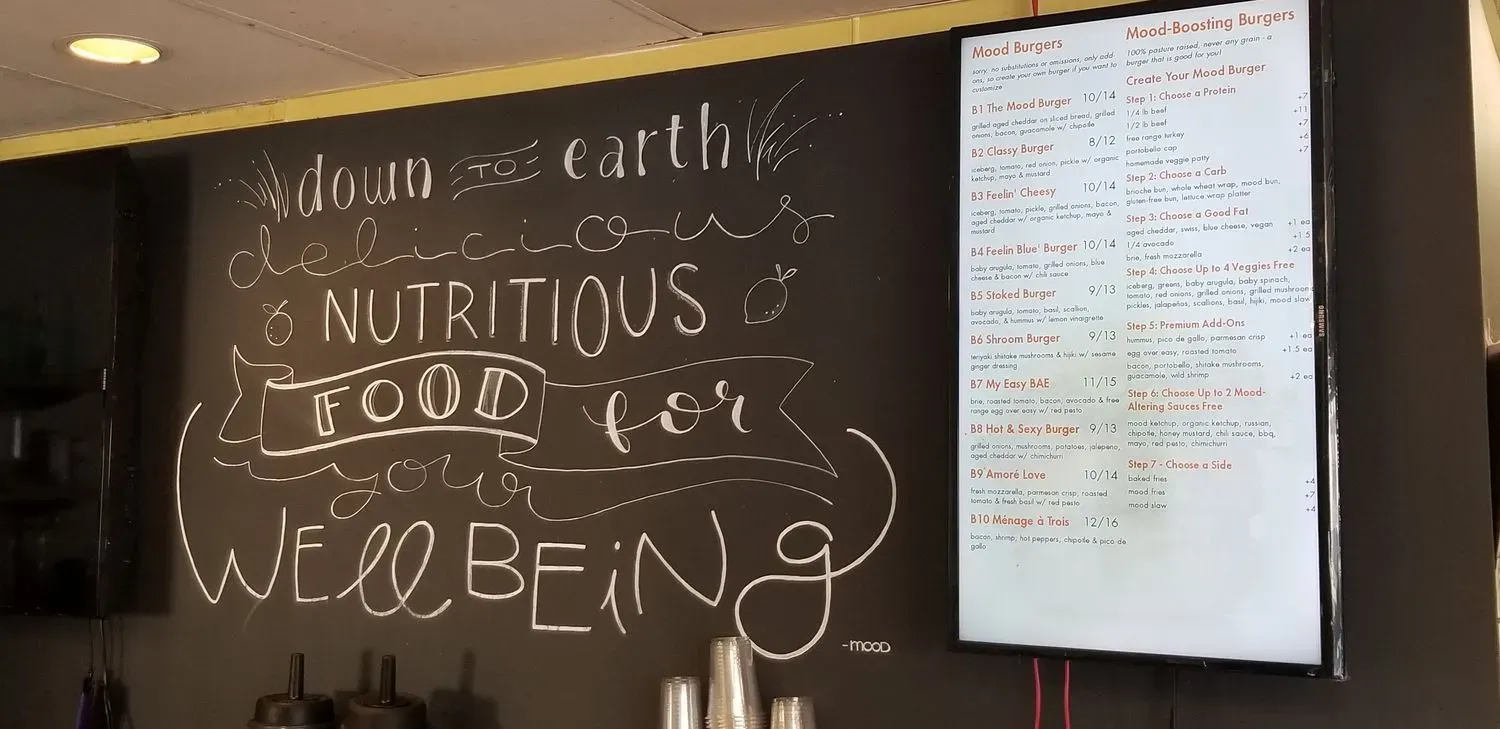 down TO earth
delicious
NUTRITIOUS
FOOD for
your
WEll BEiNg
-mood
Mood Burgers
sorry, no substitutions or omissions, only add
ons, so create your own burger if you want to
customize
B1 The Mood Burger 10/14
grilled aged cheddar on sliced bread, grilled
onions, bacon, guacamole w/ chipotle
B2 Classy Burger 8/12
iceberg, tomato, red onion, pickle w/ organic
ketchup, mayo & mustard
B3 Feelin' Cheesy 10/14
iceberg, tomato, pickle, grilled onions, bacon,
aged cheddar w/ organic ketchup, mayo &
mustard
B4 Feelin Blue' Burger 10/14
baby arugula, tomato, grilled onions, blue
cheese & bacon w/ chili sauce
B5 Stoked Burger 9/13
baby arugula, tomato, basil, scallion,
avocado, & hummus w/ lemon vinaigrette
B6 Shroom Burger 9/13
teriyaki shitake mushrooms & hijiki w/ sesame
ginger dressing
B7 My Easy BAE 11/15
brie, roasted tomato, bacon, avocado & free
range egg over easy w/ red pesto
B8 Hot & Sexy Burger 9/13
grilled onions, mushrooms, potatoes, jalapeno,
aged cheddar w/ chimichurri
B9 Amoré Love 10/14
fresh mozzarella, parmesan crisp, roasted
tomato & fresh basil w/ red pesto
B10 Ménage à Trois 12/16
bacon, shrimp, hot peppers, chipotle & pico de
gallo
Mood-Boosting Burgers
100% pasture raised, never any grain - a
burger that is good for you!
Create Your Mood Burger
Step 1: Choose a Protein
1/4 lb beef +7
1/2 lb beef +11
free range turkey +7
portobello cap +6
homemade veggie patty +7
Step 2: Choose a Carb
brioche bun, whole wheat wrap, mood bun,
gluten-free bun, lettuce wrap platter
Step 3: Choose a Good Fat
aged cheddar, swiss, blue cheese, vegan +1 ea
1/4 avocado +1.5
brie, fresh mozzarella +2 ea
Step 4: Choose Up to 4 Veggies Free
iceberg, greens, baby arugula, baby spinach,
tomato, red onions, grilled onions, grilled mushroom
pickles, jalapeños, scallions, basil, hijki, mood slaw
Step 5: Premium Add-Ons
hummus, pico de gallo, parmesan crisp +1 ea
egg over easy, roasted tomato +1.5 ea
bacon, portobello, shitake mushrooms,
guacamole, wild shrimp +2 ea
Step 6: Choose Up to 2 Mood-
Altering Sauces Free
mood ketchup, organic ketchup, russian,
chipotle, honey mustard, chili sauce, bbq,
mayo, red pesto, chimichurri
Step 7 - Choose a Side
baked fries +4
mood fries +7
mood slaw +4
SAMSUNG